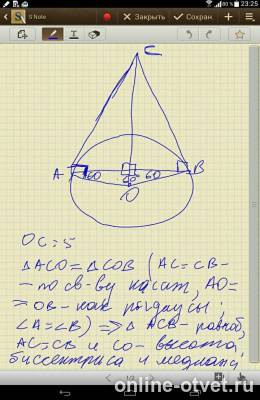 23:25
S Note
Закрыть
Сохран
C
A
60
60
60
B
O
OC=5
△ACO=△COB (AC=CB-
- по св-ву касат, AO=
=OB - как радиусы;
∠A=∠B) => △ACB - равноб,
AC=CB и CO - высота,
биссектриса и медиана
1/2
online-otvet.ru